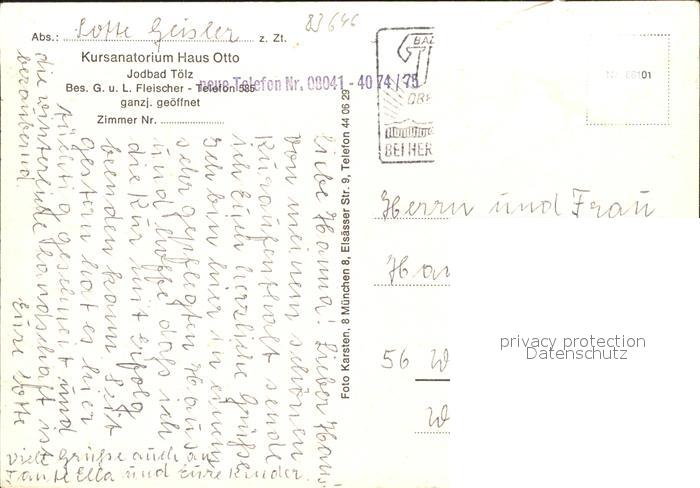 83646
Abs.: Lotte Geisler z. Zt.
Kursanatorium Haus Otto
Jodbad Tölz
Bes. G. u. L. Fleischer - Telefon 585
neue Telefon Nr. 08041 - 40 74 / 75
ganzj. geöffnet
Zimmer Nr.
Liebe Hanna! Lieber Hans!
Von meinem schönen
Kuraufenthalt sende
ich Euch herzliche Grüße
Ich bin hier in einem
sehr gepflegten Haus
und hoffe daß ich
die Kur mit erfolg
beenden kann. Seit
gestern hat es hier
tüchtig geschneit und
die winterliche Landschaft ist
bezaubernd.
Eure Lotte
Viele Grüße auch an
Tante Ella und Eure Kinder.
Foto Karsten, 8 München 8, Elsässer Str. 9, Telefon 44 06 29
BAD
OBE
BEI HER
Herrn und Frau
Ha
56 W
W
privacy protection
Datenschutz